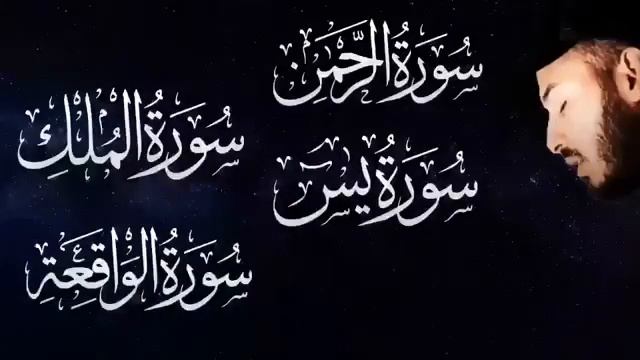 سُورَةُ الرَّحْمٰن
سُورَةُ الْمُلْكِ
سُورَةُ يٓس
سُورَةُ الْوَاقِعَةِ